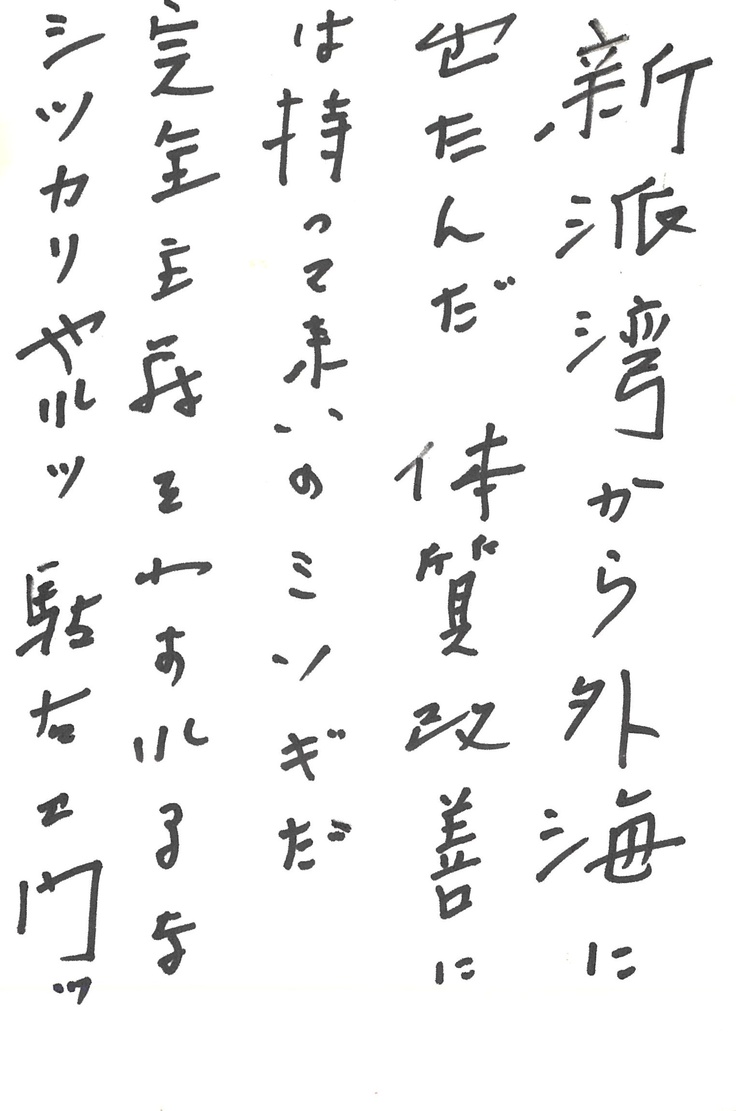 新派湾から外海に
出たんだ 体質改善に
は持って来いのミソギだ
完全主義をわすれるな
シッカリヤルッ 駄右エ門ッ